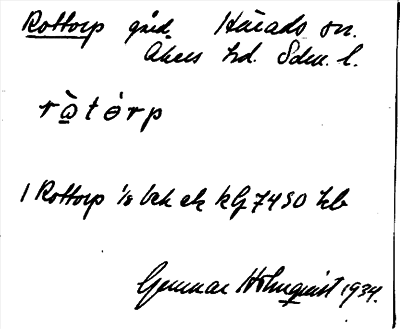 Rottorp gård. Härads sn.
Åkers hd. Sdm. l.
rò̱tórp
1 Rottorp 1/8 bck ck klj 7450 hb
Gunnar Holmquist 1934.